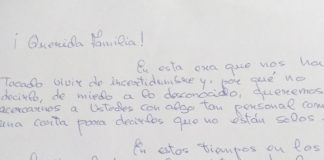 ¡Querida familia!
En esta era que nos ha
Tocado vivir de incertidumbre y, por qué no
decirlo, de miedo a lo desconocido, queremos
acercarnos a Ustedes con algo tan personal como
una carta para decirles que no están solos.
En estos tiempos en los